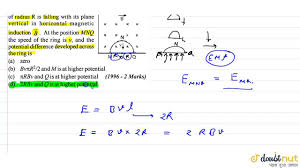 of radius R is falling with its plane
vertical in horizontal magnetic
induction B. At the position MNQ
the speed of the ring is v, and the
potential difference developed across
the ring is
(a) zero
(b) BvπR²/2 and M is at higher potential
(c) πRBv and Q is at higher potential
(d) 2RBv and Q is at higher potential
(1996 - 2 Marks)
N
EMF
E = Bvl
2R
E = B v × 2R = 2 R B v
doubtnut